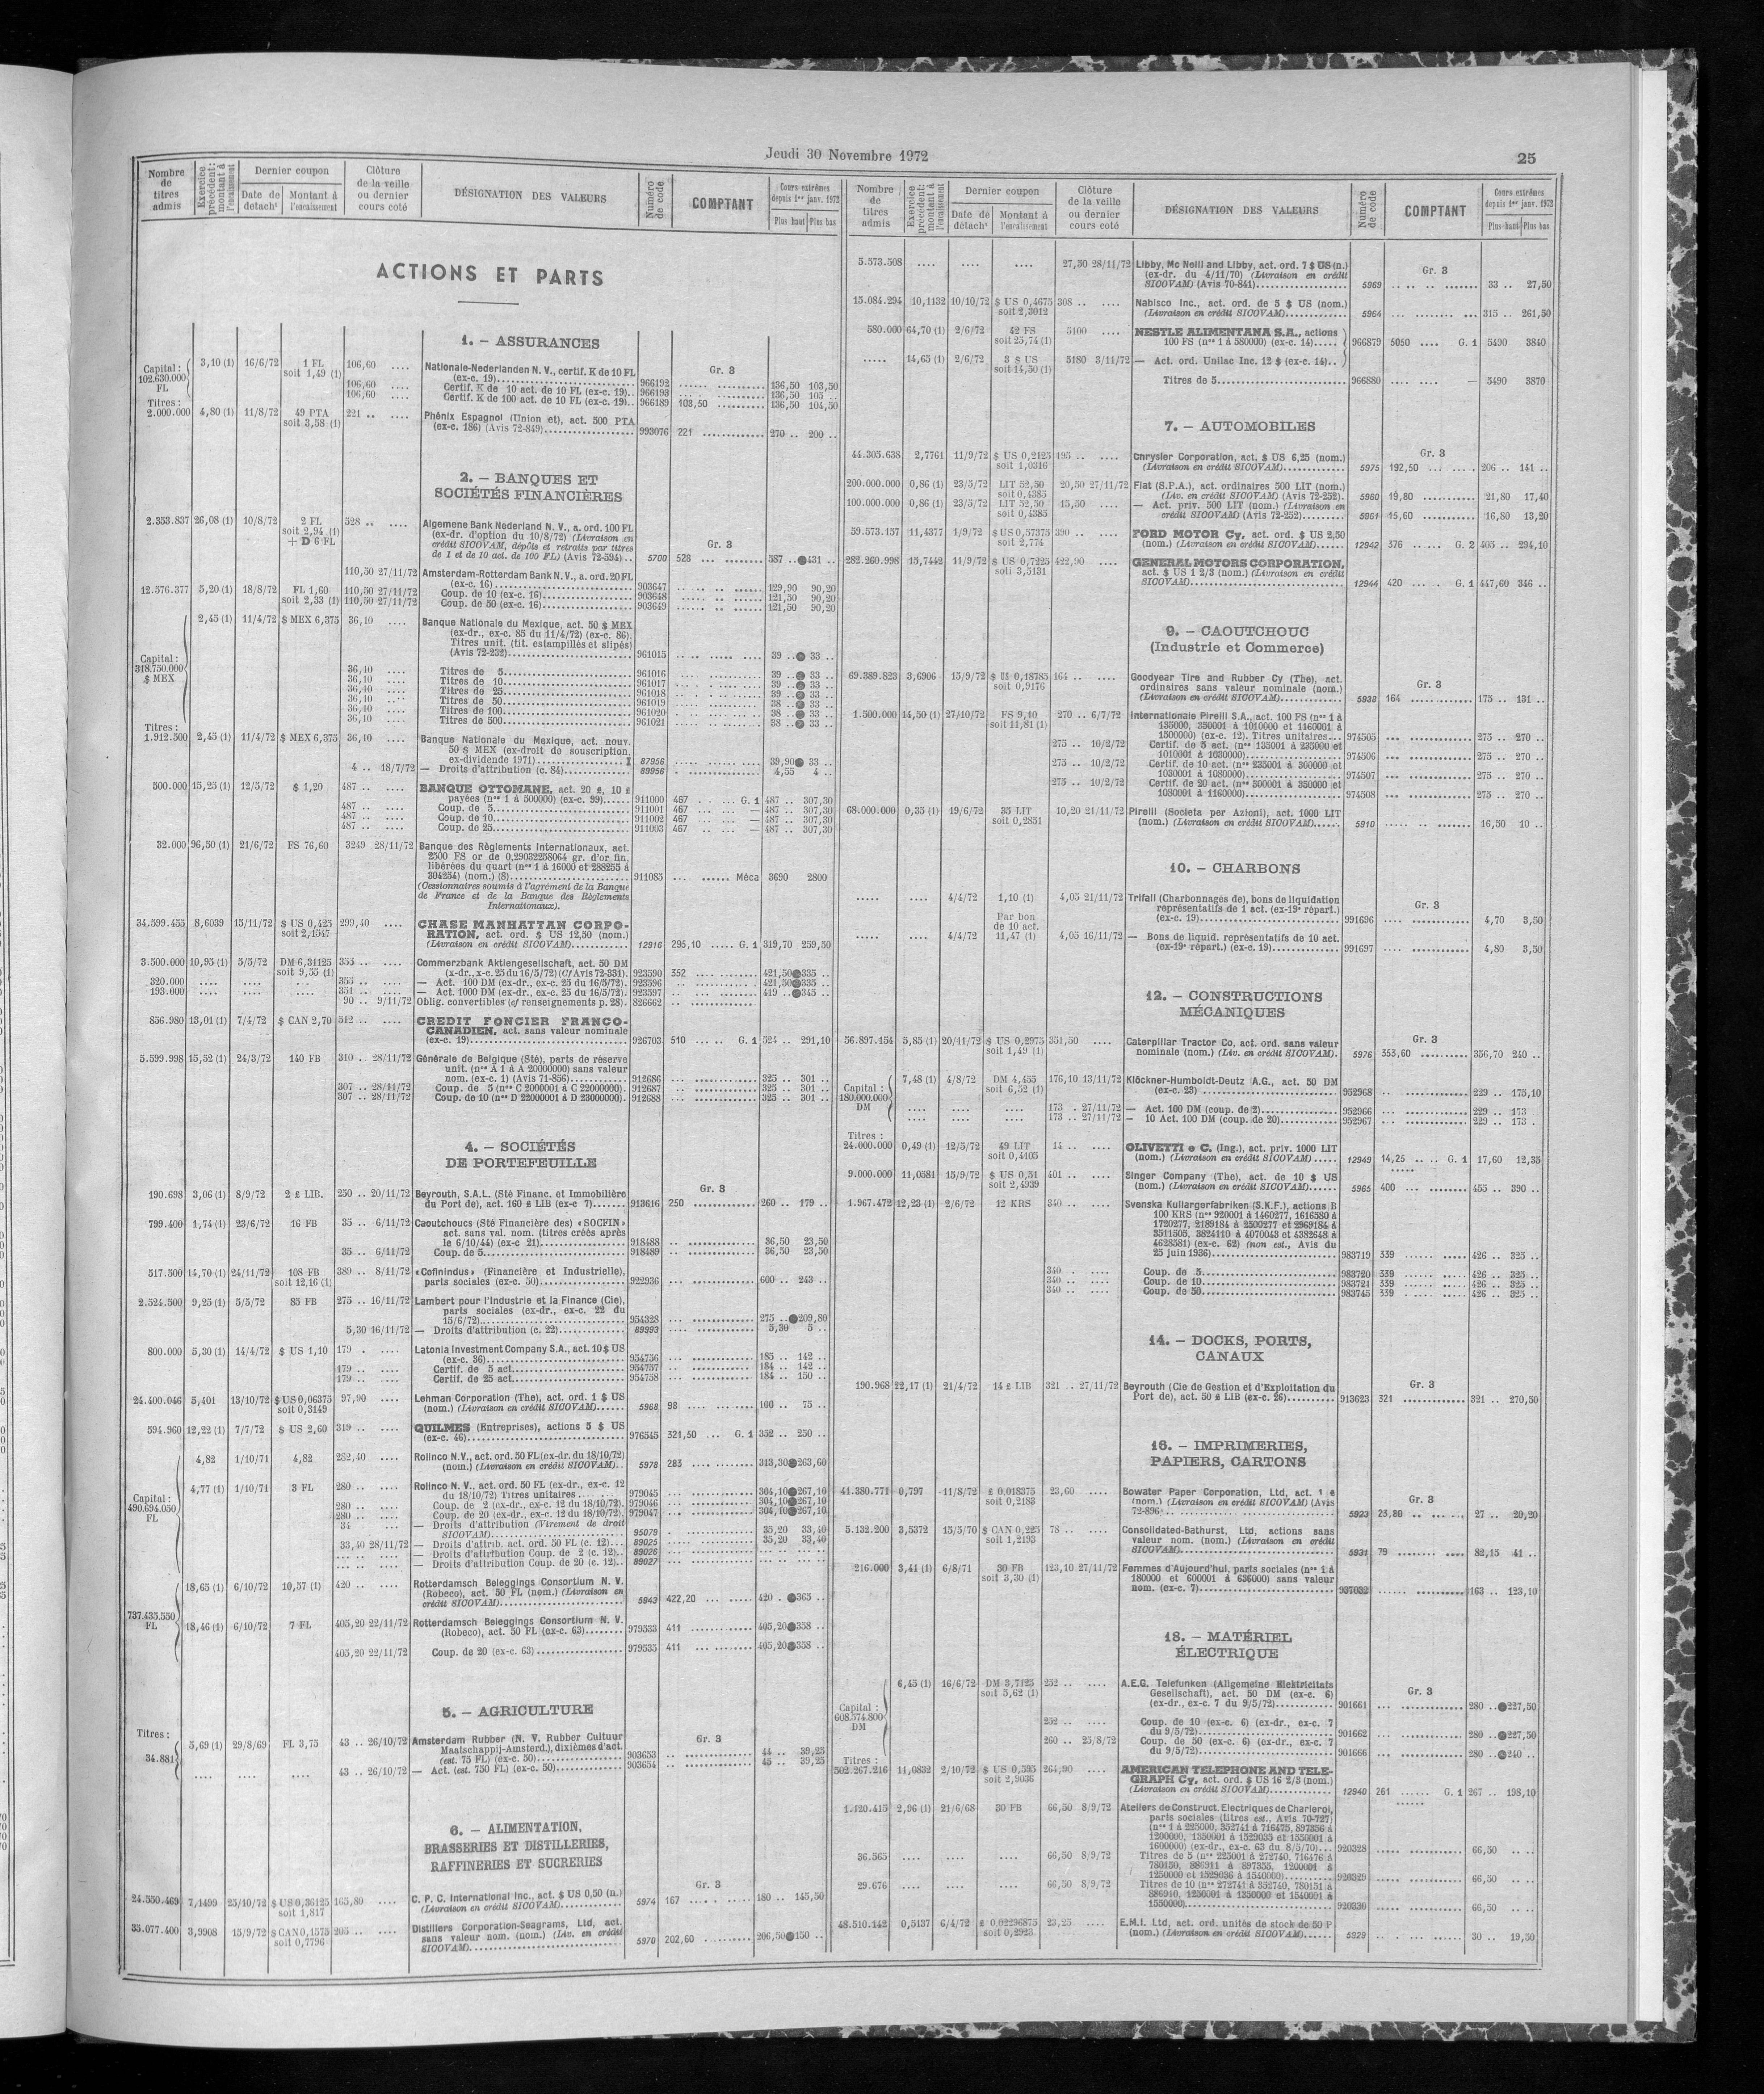 Jeudi 30 Novembre 1972
25
Nombre de titres admis | Exercice précédent: montant à l'encaissement | Dernier coupon | Date de détacht | Montant à l'encaissement | Clôture de la veille ou dernier cours coté | DÉSIGNATION DES VALEURS | Numéro de code | COMPTANT | Cours extrêmes depuis 1er janv. 1972 | Plus haut | Plus bas
ACTIONS ET PARTS
1. — ASSURANCES
Gr. 3
Capital : 102.630.000 FL
3,10 (1) 16/6/72 1 FL soit 1,49 (1) 106,60 .... Nationale-Nederlanden N. V., certif. K de 10 FL
(ex-c. 19) 966192 136,50 103,50
106,60 .... Certif. K de 10 act. de 10 FL (ex-c. 19).. 966193 136,50 105 ..
106,60 .... Certif. K de 100 act. de 10 FL (ex-c. 19).. 966189 103,50 136,50 104,50
Titres :
2.000.000 4,80 (1) 11/8/72 49 PTA soit 3,58 (1) 221 .. .... Phénix Espagnol (Union et), act. 500 PTA
(ex-c. 186) (Avis 72-849) 993076 221 270 .. 200 ..
2. — BANQUES ET
SOCIÉTÉS FINANCIÈRES
Gr. 3
2.353.837 26,08 (1) 10/8/72 2 FL soit 2,94 (1) + D 6 FL 528 .. .... Algemene Bank Nederland N. V., a. ord. 100 FL
(ex-dr. d'option du 10/8/72) (Livraison en
crédit SICOVAM, dépôts et retraits par titres
de 1 et de 10 act. de 100 FL) (Avis 72-594).. 5700 528 587 .. ●431 ..
110,50 27/11/72 Amsterdam-Rotterdam Bank N. V., a. ord. 20 FL
(ex-c. 16) 903647 129,90 90,20
12.576.377 5,20 (1) 18/8/72 FL 1,60 soit 2,33 (1) 110,50 27/11/72 Coup. de 10 (ex-c. 16) 903648 121,50 90,20
110,50 27/11/72 Coup. de 50 (ex-c. 16) 903649 121,50 90,20
Capital : 318.750.000 $ MEX
2,45 (1) 11/4/72 $ MEX 6,375 36,10 .... Banque Nationale du Mexique, act. 50 $ MEX
(ex-dr., ex-c. 85 du 11/4/72) (ex-c. 86).
Titres unit. (tit. estampillés et slipés)
(Avis 72-232) 961015 39 ..● 33 ..
36,10 .... Titres de 5 961016 39 ..● 33 ..
36,10 .... Titres de 10 961017 39 ..● 33 ..
36,10 .... Titres de 25 961018 39 ..● 33 ..
36,10 .... Titres de 50 961019 38 ..● 33 ..
36,10 .... Titres de 100 961020 38 ..● 33 ..
36,10 .... Titres de 500 961021 38 ..● 33 ..
Titres :
1.912.500 2,45 (1) 11/4/72 $ MEX 6,375 36,10 .... Banque Nationale du Mexique, act. nouv.
50 $ MEX (ex-droit de souscription,
ex-dividende 1971) 87956 39,90● 33 ..
4 .. 18/7/72 — Droits d'attribution (c. 84) 89956 4,55 4 ..
500.000 15,25 (1) 12/5/72 $ 1,20 487 .. .... BANQUE OTTOMANE, act. 20 £, 10 £
payées (nos 1 à 500000) (ex-c. 99) 911000 467 G. 1 487 .. 307,30
487 .. .... Coup. de 5 911001 467 — 487 .. 307,30
487 .. .... Coup. de 10 911002 467 — 487 .. 307,30
487 .. .... Coup. de 25 911003 467 — 487 .. 307,30
32.000 96,50 (1) 21/6/72 FS 76,60 3249 28/11/72 Banque des Règlements Internationaux, act.
2500 FS or de 0,29032258064 gr. d'or fin,
libérées du quart (nos 1 à 16000 et 288255 à
304254) (nom.) (8) 911085 Méca 3690 2800
(Cessionnaires soumis à l'agrément de la Banque
de France et de la Banque des Règlements
Internationaux).
34.599.455 8,6039 15/11/72 $ US 0,425 soit 2,1547 299,40 .... CHASE MANHATTAN CORPO-
RATION, act. ord. $ US 12,50 (nom.)
(Livraison en crédit SICOVAM) 12916 295,10 G. 1 319,70 259,50
3.500.000 10,95 (1) 5/5/72 DM 6,31125 soit 9,55 (1) 355 .. .... Commerzbank Aktiengesellschaft, act. 50 DM
(x-dr., x-c. 25 du 16/5/72) (Cf Avis 72-331). 923590 352 421,50●335 ..
320.000 .... 355 .. .... — Act. 100 DM (ex-dr., ex-c. 25 du 16/5/72). 923596 421,50●335 ..
193.000 .... 351 .. .... — Act. 1000 DM (ex-dr., ex-c. 25 du 16/5/72). 923597 419 ..●345 ..
90 .. 9/11/72 Oblig. convertibles (cf renseignements p. 28). 826662
856.980 13,01 (1) 7/4/72 $ CAN 2,70 512 .. .... CREDIT FONCIER FRANCO-
CANADIEN, act. sans valeur nominale
(ex-c. 19) 926703 510 G. 1 524 .. 291,10
5.599.998 15,52 (1) 24/3/72 140 FB 310 .. 28/11/72 Générale de Belgique (Sté), parts de réserve
unit. (nos A 1 à A 20000000) sans valeur
nom. (ex-c. 1) (Avis 71-856) 912686 325 .. 301 ..
307 .. 28/11/72 Coup. de 5 (nos C 2000001 à C 22000000). 912687 325 .. 301 ..
307 .. 28/11/72 Coup. de 10 (nos D 22000001 à D 23000000). 912688 325 .. 301 ..
4. — SOCIÉTÉS
DE PORTEFEUILLE
Gr. 3
190.698 3,06 (1) 8/9/72 2 £ LIB. 250 .. 20/11/72 Beyrouth, S.A.L. (Sté Financ. et Immobilière
du Port de), act. 160 £ LIB (ex-c 7) 913616 250 260 .. 179 ..
799.400 1,74 (1) 23/6/72 16 FB 35 .. 6/11/72 Caoutchoucs (Sté Financière des) «SOCFIN»
act. sans val. nom. (titres créés après
le 6/10/44) (ex-c 21) 918488 36,50 23,50
35 .. 6/11/72 Coup. de 5 918489 36,50 23,50
517.500 14,70 (1) 24/11/72 108 FB soit 12,16 (1) 389 .. 8/11/72 «Cofinindus» (Financière et Industrielle),
parts sociales (ex-c. 50) 922936 600 .. 243 ..
2.524.500 9,25 (1) 5/5/72 85 FB 275 .. 16/11/72 Lambert pour l'Industrie et la Finance (Cie),
parts sociales (ex-dr., ex-c. 22 du
15/6/72) 954328 275 ..●209,80
5,30 16/11/72 — Droits d'attribution (c. 22) 89993 5,30 5 ..
800.000 5,30 (1) 14/4/72 $ US 1,10 179 . .... Latonia Investment Company S.A., act. 10 $ US
(ex-c. 36) 954756 185 .. 142 ..
179 .. .... Certif. de 5 act 954757 184 .. 142 ..
179 .. .... Certif. de 25 act 954758 184 .. 150 ..
24.400.046 5,401 13/10/72 $ US 0,06375 soit 0,3149 97,90 .... Lehman Corporation (The), act. ord. 1 $ US
(nom.) (Livraison en crédit SICOVAM) 5968 98 100 .. 75 ..
594.960 12,22 (1) 7/7/72 $ US 2,60 319 .. .... QUILMES (Entreprises), actions 5 $ US
(ex-c. 46) 976545 321,50 G. 1 352 .. 250 ..
Capital : 490.694.050 FL
4,82 1/10/71 4,82 282,40 .... Rolinco N.V., act. ord. 50 FL (ex-dr. du 18/10/72)
(nom.) (Livraison en crédit SICOVAM).. 5978 283 313,30●263,60
4,77 (1) 1/10/71 3 FL 280 .. .... Rolinco N. V., act. ord. 50 FL (ex-dr., ex-c. 12
du 18/10/72) Titres unitaires 979045 304,10●267,10
280 .. .... Coup. de 2 (ex-dr., ex-c. 12 du 18/10/72). 979046 304,10●267,10
280 .. .... Coup. de 20 (ex-dr., ex-c. 12 du 18/10/72). 979047 304,10●267,10
34 — Droits d'attribution (Virement de droit
SICOVAM) 95079 35,20 33,40
33,40 28/11/72 — Droits d'attrib. act. ord. 50 FL (c. 12) 89025 35,20 33,40
— Droits d'attribution Coup. de 2 (c. 12).. 89026
— Droits d'attribution Coup. de 20 (c. 12).. 89027
737.435.550 FL
18,65 (1) 6/10/72 10,57 (1) 420 .. .... Rotterdamsch Beleggings Consortium N. V.
(Robeco), act. 50 FL (nom.) (Livraison en
crédit SICOVAM) 5943 422,20 420 . ●365 ..
18,46 (1) 6/10/72 7 FL 405,20 22/11/72 Rotterdamsch Beleggings Consortium N. V.
(Robeco), act. 50 FL (ex-c. 63) 979533 411 405,20●358 ..
405,20 22/11/72 Coup. de 20 (ex-c. 63) 979535 411 405,20●358 ..
5. — AGRICULTURE
Gr. 3
Titres :
34.881
5,69 (1) 29/8/69 FL 3,75 43 .. 26/10/72 Amsterdam Rubber (N. V. Rubber Cultuur
Maatschappij-Amsterd.), dixièmes d'act.
(est. 75 FL) (ex-c. 50) 903653 44 .. 39,25
.... 43 .. 26/10/72 — Act. (est. 750 FL) (ex-c. 50) 903654 45 .. 39,25
6. — ALIMENTATION,
BRASSERIES ET DISTILLERIES,
RAFFINERIES ET SUCRERIES
Gr. 3
24.550.469 7,1499 25/10/72 $ US 0,36125 soit 1,817 165,80 .... C. P. C. International Inc., act. $ US 0,50 (n.)
(Livraison en crédit SICOVAM) 5974 167 180 .. 145,50
35.077.400 3,9908 15/9/72 $ CAN 0,1575 soit 0,7796 205 .. .... Distillers Corporation-Seagrams, Ltd, act.
sans valeur nom. (nom.) (Liv. en crédit
SICOVAM) 5970 202,60 206,50●150 ..
Nombre de titres admis | Exercice précédent: montant à l'encaissement | Dernier coupon | Date de détacht | Montant à l'encaissement | Clôture de la veille ou dernier cours coté | DÉSIGNATION DES VALEURS | Numéro de code | COMPTANT | Cours extrêmes depuis 1er janv. 1972 | Plus haut | Plus bas
Gr. 3
5.573.508 .... .... .... 27,50 28/11/72 Libby, Mc Neill and Libby, act. ord. 7 $ US (n.)
(ex-dr. du 4/11/70) (Livraison en crédit
SICOVAM) (Avis 70-841) 5969 33 .. 27,50
15.084.294 10,1132 10/10/72 $ US 0,4675 soit 2,3012 308 .. .... Nabisco Inc., act. ord. de 5 $ US (nom.)
(Livraison en crédit SICOVAM) 5964 315 .. 261,50
580.000 64,70 (1) 2/6/72 42 FS soit 25,74 (1) 5100 .... NESTLE ALIMENTANA S.A., actions
100 FS (nos 1 à 580000) (ex-c. 14) 966879 5050 .... G. 1 5490 3840
..... 14,65 (1) 2/6/72 3 $ US soit 14,50 (1) 5180 3/11/72 — Act. ord. Unilac Inc. 12 $ (ex-c. 14)..
Titres de 5 966880 — 5490 3870
7. — AUTOMOBILES
Gr. 3
44.305.638 2,7761 11/9/72 $ US 0,2125 soit 1,0316 195 .. .... Chrysler Corporation, act. $ US 6,25 (nom.)
(Livraison en crédit SICOVAM) 5975 192,50 206 .. 141 ..
200.000.000 0,86 (1) 23/5/72 LIT 52,50 soit 0,4385 20,50 27/11/72 Fiat (S.P.A.), act. ordinaires 500 LIT (nom.)
(Liv. en crédit SICOVAM) (Avis 72-252). 5960 19,80 21,80 17,40
100.000.000 0,86 (1) 23/5/72 LIT 52,50 soit 0,4385 15,60 .... — Act. priv. 500 LIT (nom.) (Livraison en
crédit SICOVAM) (Avis 72-252) 5961 15,60 16,80 13,20
59.573.157 11,4377 1/9/72 $ US 0,57375 soit 2,774 390 .. .... FORD MOTOR Cy, act. ord. $ US 2,50
(nom.) (Livraison en crédit SICOVAM) 12942 376 G. 2 405 .. 294,10
282.260.998 15,7442 11/9/72 $ US 0,7225 soti 3,5131 422,90 .... GENERAL MOTORS CORPORATION,
act. $ US 1 2/3 (nom.) (Livraison en crédit
SICOVAM) 12944 420 G. 1 447,60 346 ..
9. — CAOUTCHOUC
(Industrie et Commerce)
Gr. 3
69.389.823 3,6906 15/9/72 $ US 0,18785 soit 0,9176 164 .. .... Goodyear Tire and Rubber Cy (The), act.
ordinaires sans valeur nominale (nom.)
(Livraison en crédit SICOVAM) 5938 164 175 .. 131 ..
1.500.000 14,50 (1) 27/10/72 FS 9,10 soit 11,81 (1) 270 .. 6/7/72 Internationale Pirelli S.A., act. 100 FS (nos 1 à
135000, 350001 à 1010000 et 1160001 à
1500000) (ex-c. 12). Titres unitaires 974505 275 .. 270 ..
275 .. 10/2/72 Certif. de 5 act. (nos 135001 à 235000 et
1010001 à 1030000) 974506 275 .. 270 ..
275 .. 10/2/72 Certif. de 10 act. (nos 235001 à 300000 et
1030001 à 1080000) 974507 275 .. 270 ..
275 .. 10/2/72 Certif. de 20 act. (nos 300001 à 350000 et
1080001 à 1160000) 974508 275 .. 270 ..
68.000.000 0,35 (1) 19/6/72 35 LIT soit 0,2851 10,20 21/11/72 Pirelli (Societa per Azioni), act. 1000 LIT
(nom.) (Livraison en crédit SICOVAM) 5910 16,50 10 ..
10. — CHARBONS
Gr. 3
..... .... 4/4/72 1,10 (1) 4,05 21/11/72 Trifail (Charbonnages de), bons de liquidation
représentatifs de 1 act. (ex-19e répart.)
(ex-c. 19) 991696 4,70 3,50
..... .... 4/4/72 Par bon de 10 act. 11,47 (1) 4,05 16/11/72 — Bons de liquid. représentatifs de 10 act.
(ex-19e répart.) (ex-c. 19) 991697 4,80 3,50
12. — CONSTRUCTIONS
MÉCANIQUES
Gr. 3
56.897.454 5,85 (1) 20/11/72 $ US 0,2975 soit 1,49 (1) 351,50 .... Caterpillar Tractor Co, act. ord. sans valeur
nominale (nom.) (Liv. en crédit SICOVAM). 5976 353,60 356,70 240 ..
Capital : 180.000.000 DM
7,48 (1) 4/8/72 DM 4,455 soit 6,52 (1) 176,10 13/11/72 Klöckner-Humboldt-Deutz A.G., act. 50 DM
(ex-c. 23) 952968 229 .. 175,10
173 .. 27/11/72 — Act. 100 DM (coup. de 2) 952966 229 .. 173 ..
173 .. 27/11/72 — 10 Act. 100 DM (coup. de 20) 952967 229 .. 173 .
Titres :
24.000.000 0,49 (1) 12/5/72 49 LIT soit 0,4105 14 .. .... OLIVETTI e C. (Ing.), act. priv. 1000 LIT
(nom.) (Livraison en crédit SICOVAM) 12949 14,25 G. 1 17,60 12,35
9.000.000 11,0581 15/9/72 $ US 0,51 soit 2,4939 401 .. .... Singer Company (The), act. de 10 $ US
(nom.) (Livraison en crédit SICOVAM) 5965 400 455 .. 390 ..
1.967.472 12,23 (1) 2/6/72 12 KRS 340 .. .... Svenska Kullargerfabriken (S.K.F.), actions B
100 KRS (nos 920001 à 1460277, 1616580 à
1720277, 2189184 à 2500277 et 2969184 à
3511505, 3824110 à 4070043 et 4382648 à
4628581) (ex-c. 62) (non est., Avis du
25 juin 1936) 983719 339 426 .. 325 ..
340 . .... Coup. de 5 983720 339 426 .. 325 ..
340 .. .... Coup. de 10 983721 339 426 .. 325 ..
340 .. .... Coup. de 50 983745 339 426 .. 325 ..
14. — DOCKS, PORTS,
CANAUX
Gr. 3
190.968 22,17 (1) 21/4/72 14 £ LIB 321 .. 27/11/72 Beyrouth (Cie de Gestion et d'Exploitation du
Port de), act. 50 £ LIB (ex-c. 26) 913623 321 321 .. 270,50
16. — IMPRIMERIES,
PAPIERS, CARTONS
Gr. 3
41.380.771 0,797 11/8/72 £ 0,018375 soit 0,2183 23,60 .... Bowater Paper Corporation, Ltd, act. 1 £
(nom.) (Livraison en crédit SICOVAM) (Avis
72-896) 5923 23,80 27 .. 20,20
5.132.200 3,5372 15/5/70 $ CAN 0,225 soit 1,2193 78 .. .... Consolidated-Bathurst, Ltd, actions sans
valeur nom. (nom.) (Livraison en crédit
SICOVAM) 5931 79 82,15 41 ..
216.000 3,41 (1) 6/8/71 30 FB soit 3,30 (1) 123,10 27/11/72 Femmes d'Aujourd'hui, parts sociales (nos 1 à
180000 et 600001 à 636000) sans valeur
nom. (ex-c. 7) 937032 163 .. 123,10
18. — MATÉRIEL
ÉLECTRIQUE
Gr. 3
Capital : 608.574.800 DM
6,45 (1) 16/6/72 DM 3,7125 soit 5,62 (1) 252 .. .... A.E.G. Telefunken (Allgemeine Elektricitats
Gesellschaft), act. 50 DM (ex-c. 6)
(ex-dr., ex-c. 7 du 9/5/72) 901661 280 ..●227,50
252 .. .... Coup. de 10 (ex-c. 6) (ex-dr., ex-c. 7
du 9/5/72) 901662 280 ..●227,50
260 .. 25/8/72 Coup. de 50 (ex-c. 6) (ex-dr., ex-c. 7
du 9/5/72) 901666 280 ..●240 ..
Titres :
502.267.216 11,0832 2/10/72 $ US 0,595 soit 2,9036 264,90 .... AMERICAN TELEPHONE AND TELE-
GRAPH Cy, act. ord. $ US 16 2/3 (nom.)
(Livraison en crédit SICOVAM) 12940 261 G. 1 267 .. 198,10
1.120.415 2,96 (1) 21/6/68 30 FB 66,50 8/9/72 Ateliers de Construct. Electriques de Charleroi,
parts sociales (titres est., Avis 70-727)
(nos 1 à 225000, 352741 à 716475, 897356 à
1200000, 1350001 à 1529035 et 1550001 à
1600000) (ex-dr., ex-c. 63 du 8/5/70) 920328 66,50 .. ..
36.565 .... .... .... 66,50 8/9/72 Titres de 5 (nos 225001 à 272740, 716476 à
780150, 886911 à 897355, 1200001 à
1250000 et 1529036 à 1540000) 920329 66,50 .. ..
29.676 .... .... .... 66,50 8/9/72 Titres de 10 (nos 272741 à 352740, 780151 à
886910, 1250001 à 1350000 et 1540001 à
1550000) 920330 66,50 .. ..
48.510.142 0,5137 6/4/72 £ 0,02296875 soit 0,2923 23,25 .... E.M.I. Ltd, act. ord. unités de stock de 50 P
(nom.) (Livraison en crédit SICOVAM) 5929 30 .. 19,50